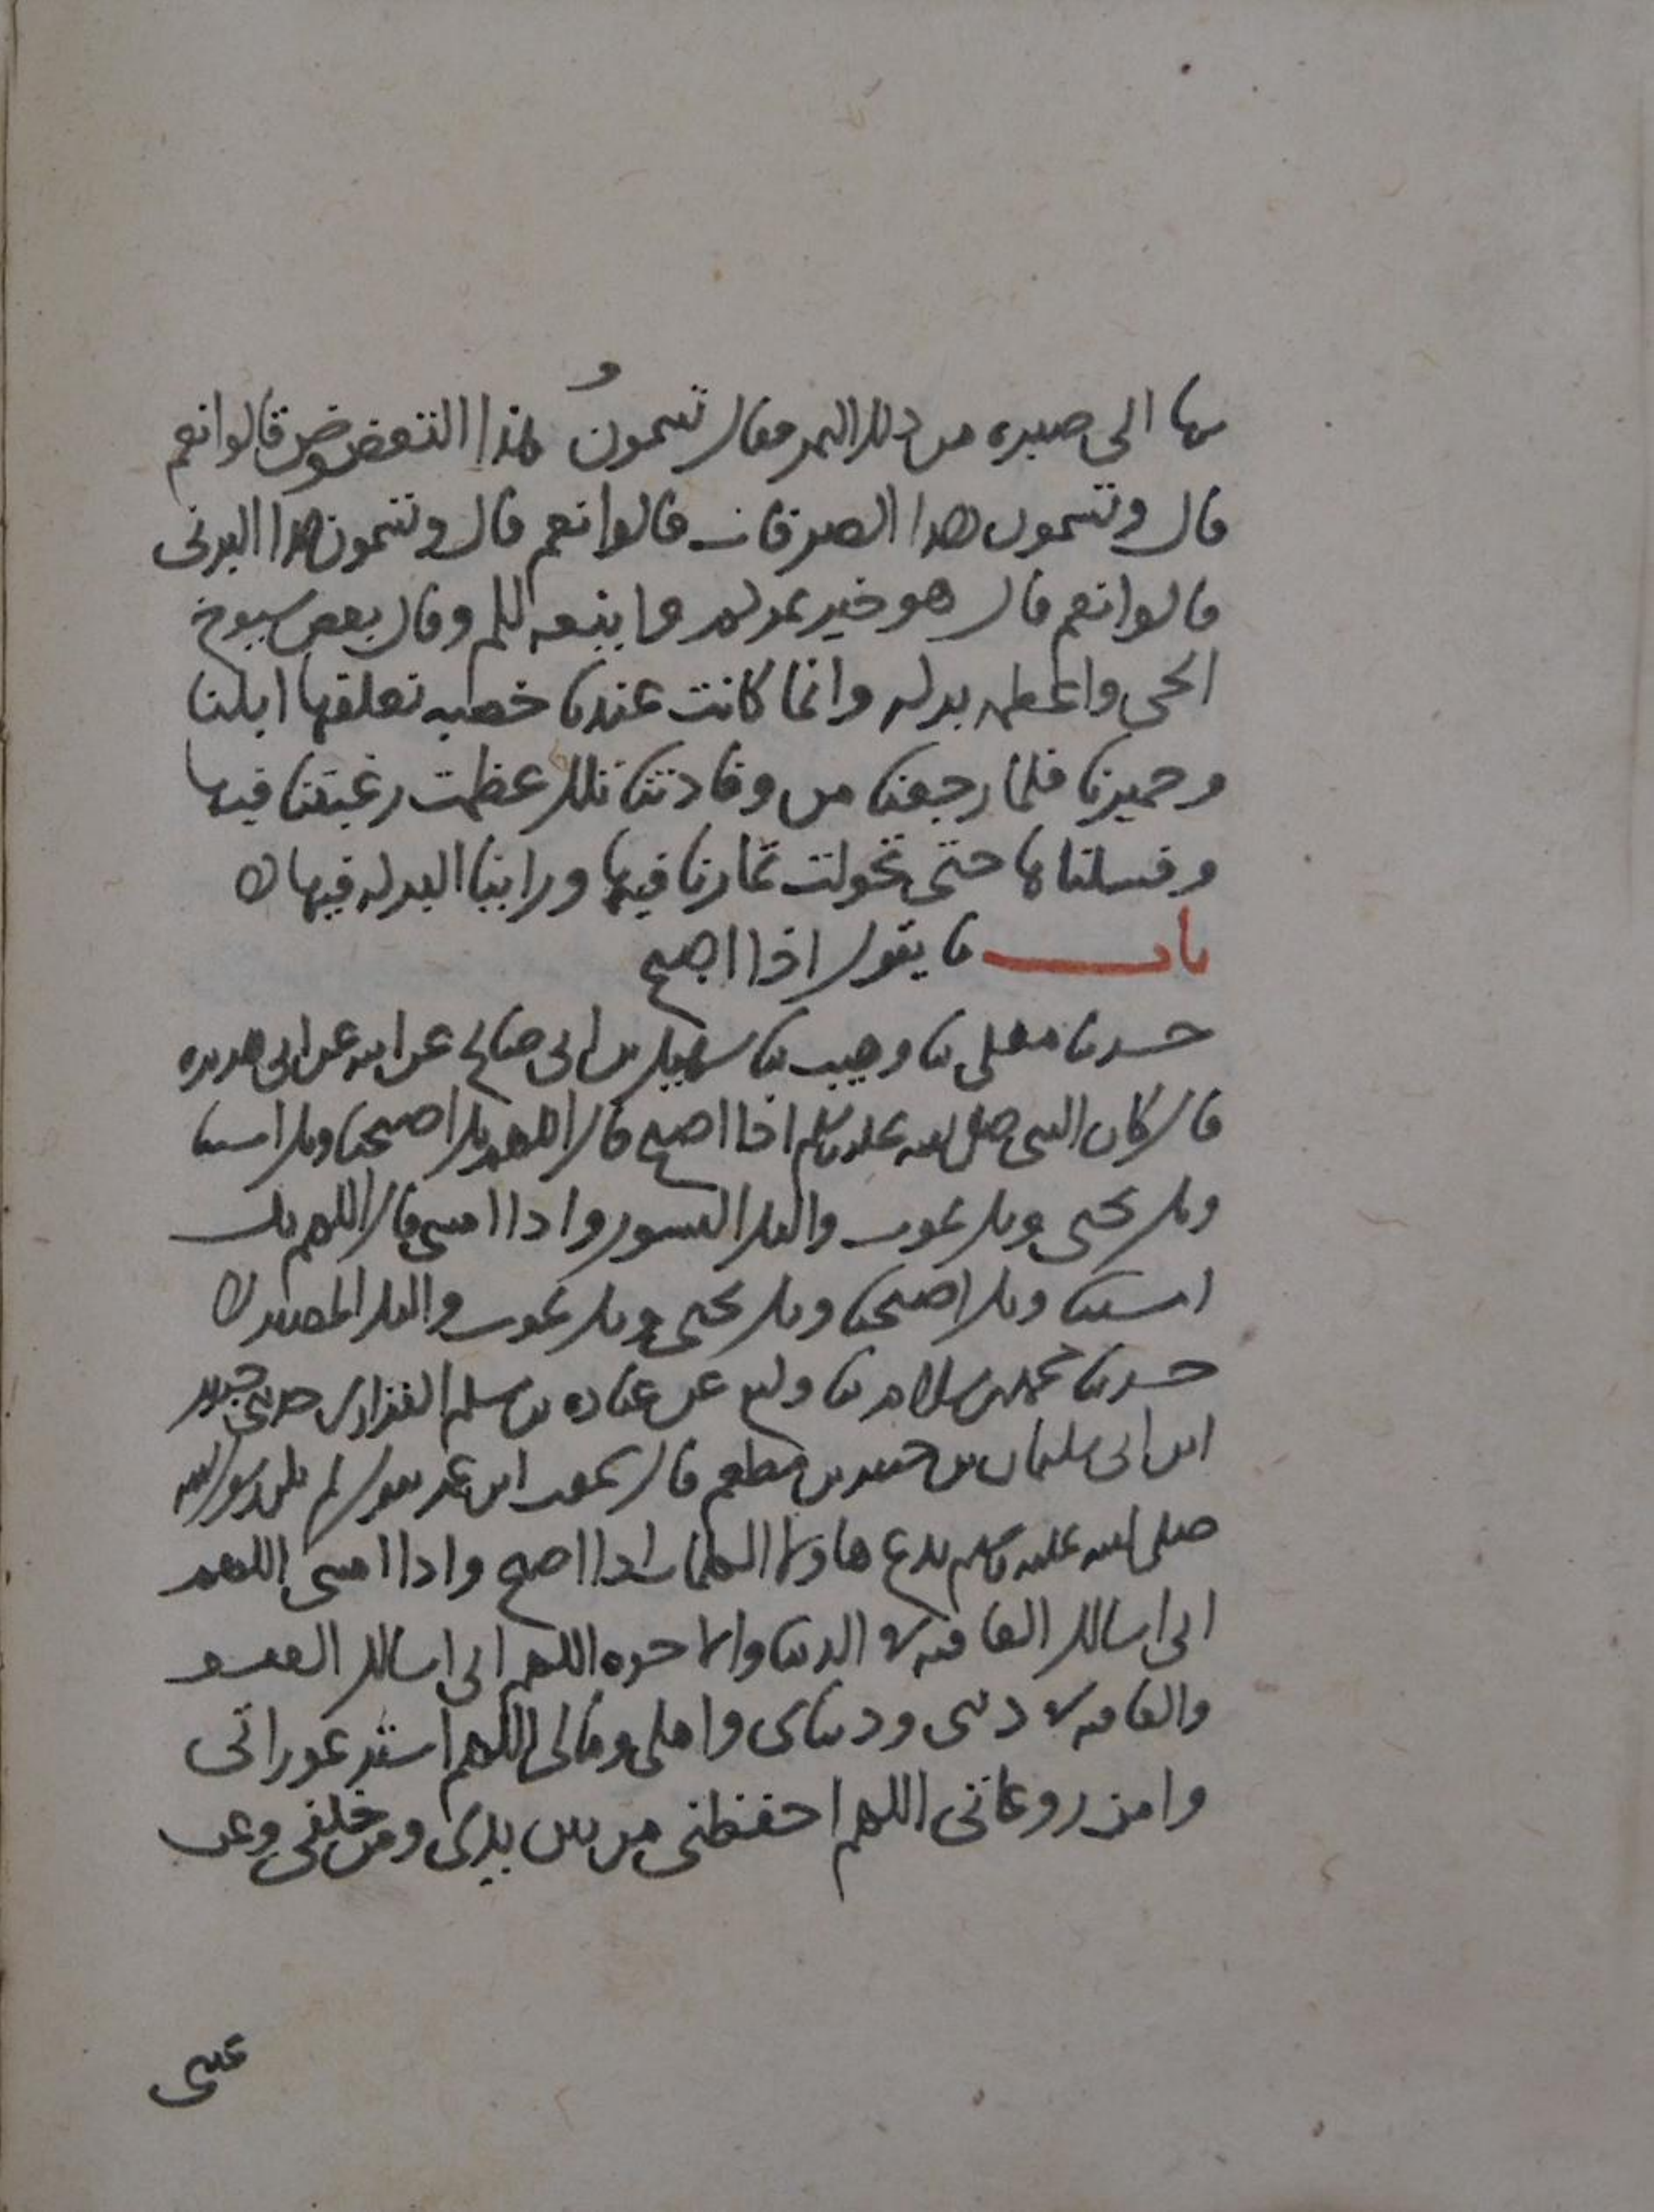 بها الى صبره من ذلك التمر فقال تسمون هذا التعضوض قالوا نعم
قال وتسمون هذا الصرفان قالوا نعم قال وتسمون هذا البرنى
قالوا نعم قال هو خير تمركم وا ينعه لكم وقال بعض شيوخ
الحى واعظمه بركه وانما كانت عندنا خصبه نعلفها ابلنا
وحميرنا فلما رجعنا من وفادتنا تلك عظمت رغبتنا فيها
وفسلناها حتى تحولت ثمارنا فيها وراينا البركه فيها
باب ما يقول اذا اصبح
حدثنا معلى نا وهيب نا سهيل بن ابى صالح عن ابيه عن ابى هريره
قال كان النبى صلى الله عليه وسلم اذا اصبح قال اللهم بك اصبحنا وبك امسينا
وبك نحيى وبك نموت واليك النشور واذا امسى قال اللهم بك
امسينا وبك اصبحنا وبك نحيى وبك نموت واليك المصير
حدثنا محمد بن سلام نا وكيع عن عباده بن مسلم الفزارى حدثنى جبير
ابن ابى سليمان بن جبير بن مطعم قال سمعت ابن عمر يقول لم يكن رسول الله
صلى الله عليه وسلم يدع هاولا الكلمات اذا اصبح واذا امسى اللهم
انى اسالك العافيه فى الدنيا والاخره اللهم انى اسالك العفو
والعافيه فى دينى ودنياى واهلى ومالى اللهم استر عوراتى
وامن روعاتى اللهم احفظنى من بين يدى ومن خلفى وعن
عينى